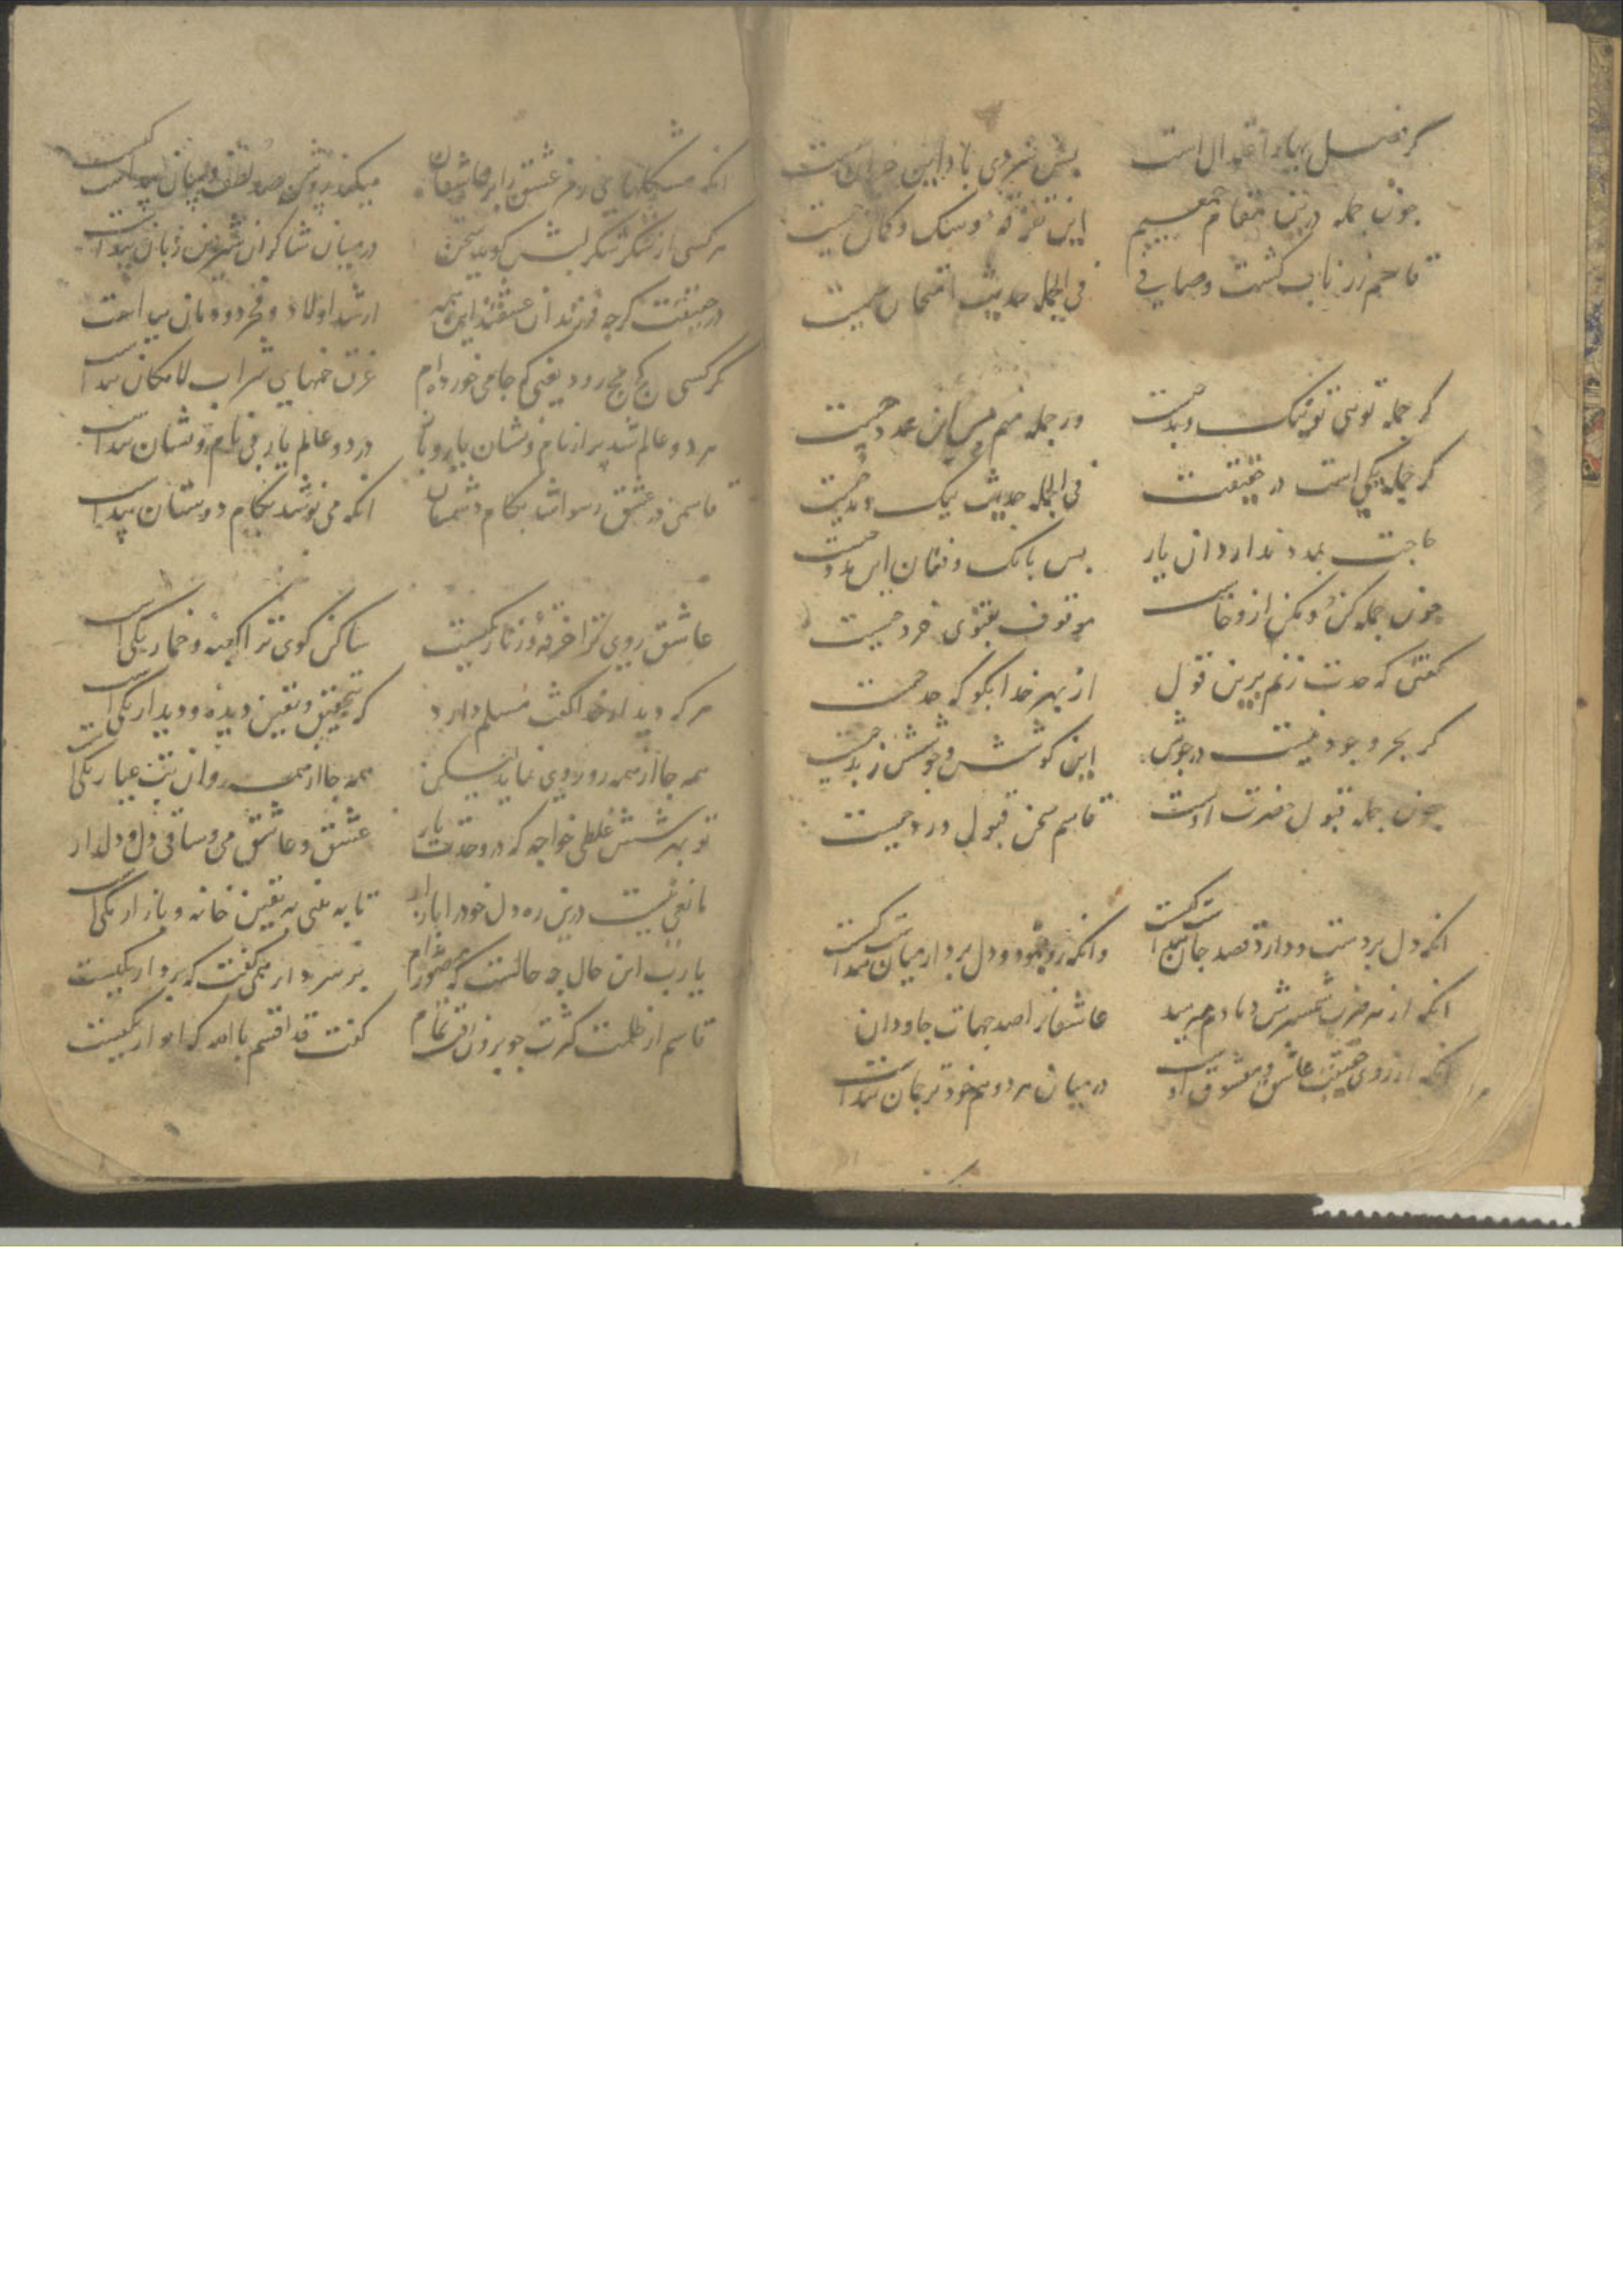 کر فصل بهار اعتدال است بیش سردی باد این خزان چیست
چون جمله درین مقام جمعیم این تفرقه و شک و کمان چیست
قاسم زر ناب کشت و صافی فی الجمله حدیث امتحان چیست
کر جمله تویی تو نیک و بد چیست ور جمله منم پس این عدد چیست
کر جمله یکی است در حقیقت فی الجمله حدیث نیک و بد چیست
حاجت بمدد ندارد ان یار بس بانک و فغان این مدد چیست
چون جمله کن و مکن ازو خاست موقوف بفتوی خرد چیست
کفتی که حدت زنم برین قول از بهر خدا بکو که حد چیست
کر بحر وجود نیست در جوش این کوشش و جوشش زبد چیست
چون جمله قبول حضرت اوست قاسم سخن قبول و رد چیست
انکه دل بردست و دارد قصد جان پیداست کیست وانکه رو بنمود و دل برد از میان پیداست کیست
انکه از هر ضرب شمشیرش دمادم میرسد عاشقانرا صد جهات جاودان
انکه از روی حقیقت عاشق و معشوق اوست در میان هر دو هم خود ترجمان پیداست
انکه مشکلهای رمز عشق را بر عاشقان میکند روشن بصد لطف و بیان پیداست کیست
هر کسی از شکر شکر لبش کوید سخن در میان شاکران شیرین زبان پیداست
در حقیقت کرچه فرزندان عشقند این همه ارشد اولاد و فخر دودمان پیداست
هر کسی کج مج رود یعنی که جامی خورده‌ام غرق خمهای شراب لامکان پیداست
هر دو عالم شد پر از نام و نشان یار و باز در دو عالم یار بی نام و نشان پیداست
قاسمی در عشق رسوا شد بکام دشمنان انکه می نوشد بکام دوستان پیداست
عاشق روی ترا خرقه و زنار یکیست ساکن کوی ترا کعبه و خمار یکی است
هر که دیدار خدا کفت مسلم دارد که بتحقیق و یقین دیده و دیدار یکی است
همه جا از همه رو روی نماید لیکن همه جا از همه روان بت عیار یکی است
تو بهر شش غلطی خواجه که در وحدت یار عشق و عاشق می و ساقی دل و دلدار
مانعی نیست درین ره دل خود را باز ار تا به بینی به یقین خانه و بازار یکی است
یا رب این حال چه حالست که منصور ز دام بر سر دار همی کفت که بردار یکیست
قاسم از ظلمت کثرت چو برون رفت تمام کفت قد اقسم بالله که اموار یکیست